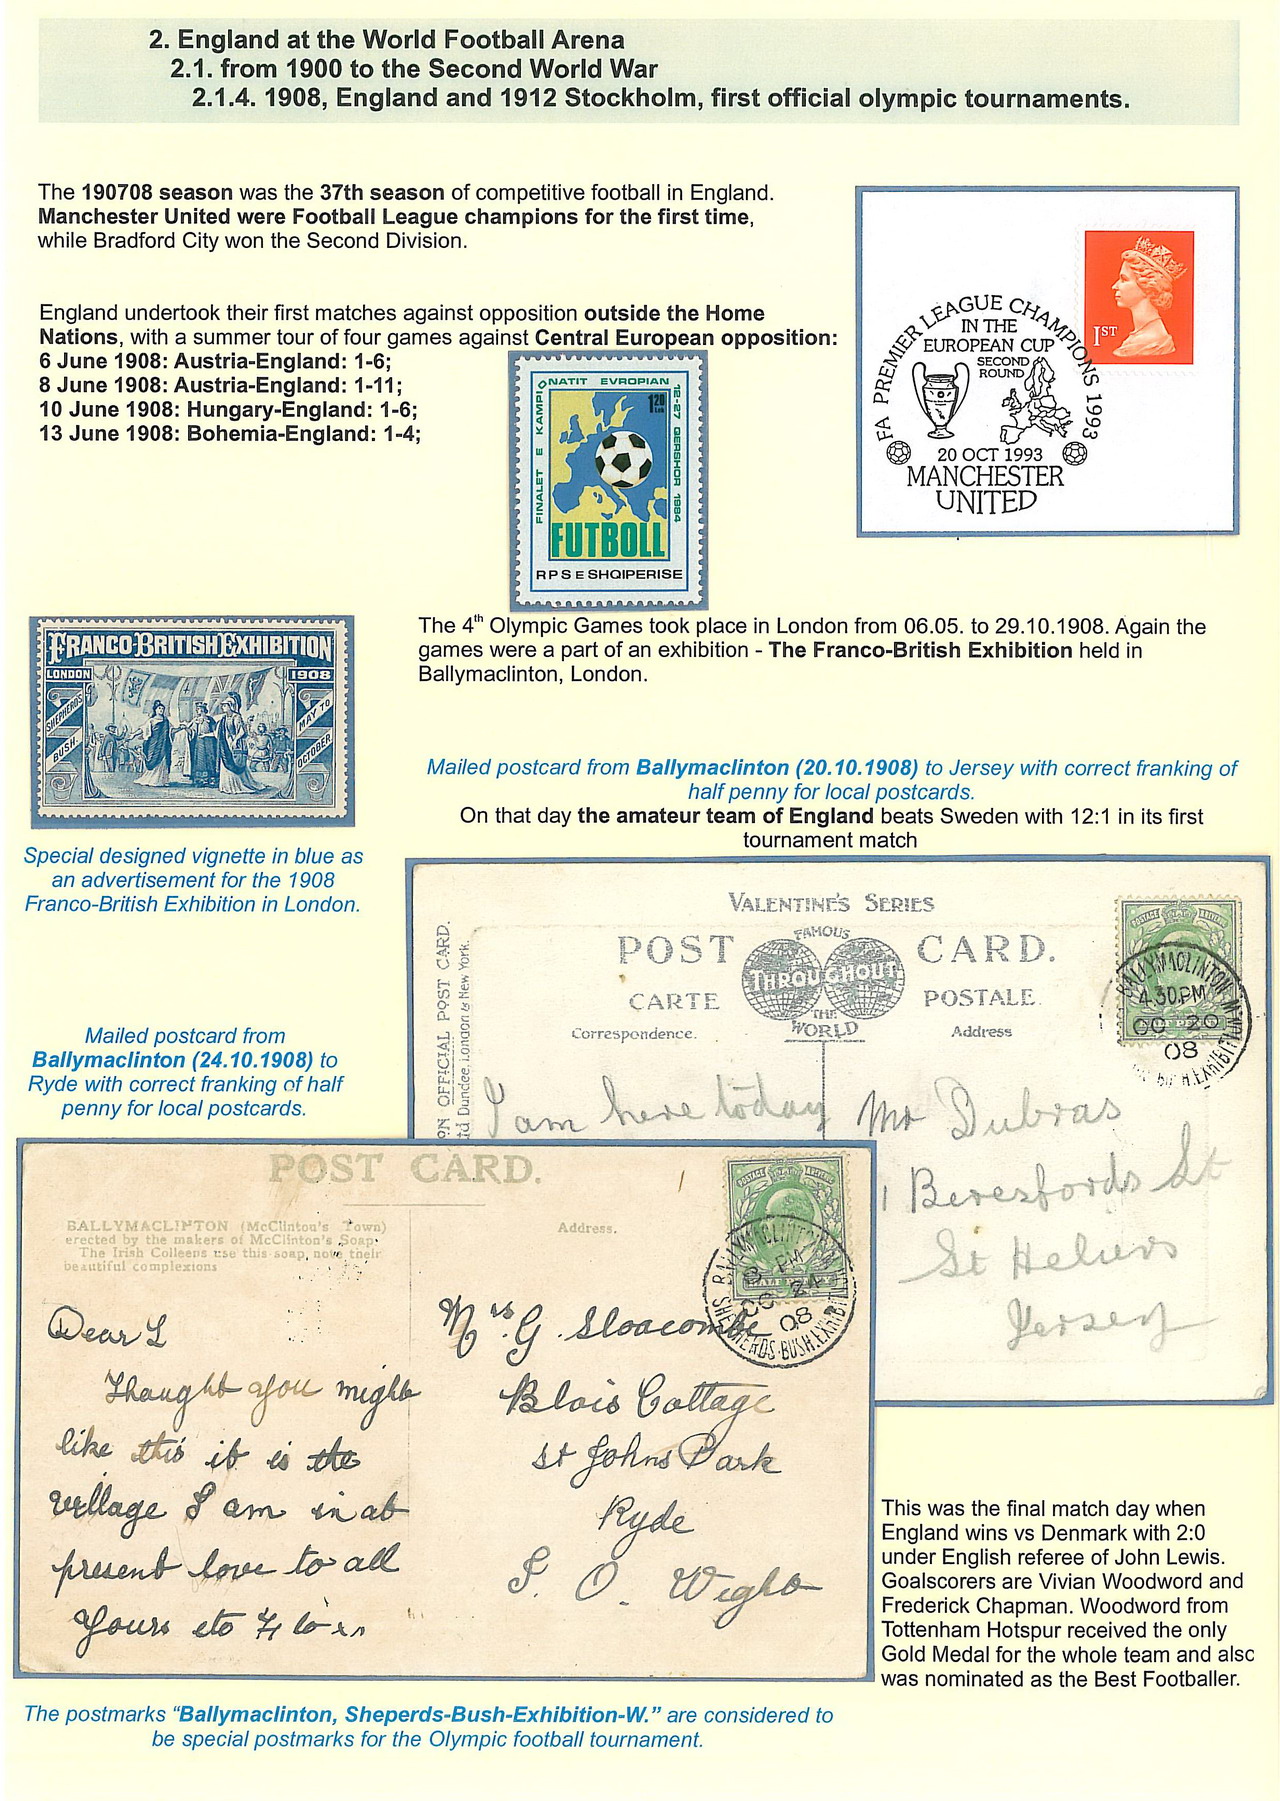 2. England at the World Football Arena
2.1. from 1900 to the Second World War
2.1.4. 1908, England and 1912 Stockholm, first official olympic tournaments.
The 190708 season was the 37th season of competitive football in England.
Manchester United were Football League champions for the first time,
while Bradford City won the Second Division.
England undertook their first matches against opposition outside the Home
Nations, with a summer tour of four games against Central European opposition:
6 June 1908: Austria-England: 1-6;
8 June 1908: Austria-England: 1-11;
10 June 1908: Hungary-England: 1-6;
13 June 1908: Bohemia-England: 1-4;
FINALET E KAMPIONATIT EVROPIAN 12-27 QERSHOR 1984
1.20
Lek
FUTBOLL
RPS E SHQIPERISE
1ST
FA PREMIER LEAGUE CHAMPIONS 1993
IN THE
EUROPEAN CUP
SECOND
ROUND
20 OCT 1993
MANCHESTER
UNITED
FRANCO-BRITISH EXHIBITION
LONDON 1908
SHEPHERD'S
BUSH.
MAY TO
OCTOBER
Special designed vignette in blue as
an advertisement for the 1908
Franco-British Exhibition in London.
The 4th Olympic Games took place in London from 06.05. to 29.10.1908. Again the
games were a part of an exhibition - The Franco-British Exhibition held in
Ballymaclinton, London.
Mailed postcard from Ballymaclinton (20.10.1908) to Jersey with correct franking of
half penny for local postcards.
On that day the amateur team of England beats Sweden with 12:1 in its first
tournament match
VALENTINE'S SERIES
FAMOUS
POST CARD.
THROUGHOUT
CARTE POSTALE
THE
WORLD
Correspondence. Address
ON OFFICIAL POST CARD.
td. Dundee, London & New York.
POSTAGE
BALLYMACLINTON
4.30 PM
OC 20
08
I am here today
Mr Dubras
1 Beresfords St
St Heliers
Jersey
Mailed postcard from
Ballymaclinton (24.10.1908) to
Ryde with correct franking of half
penny for local postcards.
POST CARD.
BALLYMACLINTON (McClinton's Town)
erected by the makers of McClinton's Soap.
The Irish Colleens use this soap, note their
beautiful complexions
Address.
HALF PENNY
BALLYMACLINTON
8 PM
OC 24
08
SHEPHERDS-BUSH-EXHIBIT
Dear L
Thought you might
like this it is the
village I am in at
present love to all
Yours etc
Mrs G. Sloacombe
Blois Cottage
St Johns Park
Ryde
I. O. Wight
This was the final match day when
England wins vs Denmark with 2:0
under English referee of John Lewis.
Goalscorers are Vivian Woodword and
Frederick Chapman. Woodword from
Tottenham Hotspur received the only
Gold Medal for the whole team and also
was nominated as the Best Footballer.
The postmarks “Ballymaclinton, Sheperds-Bush-Exhibition-W.” are considered to
be special postmarks for the Olympic football tournament.